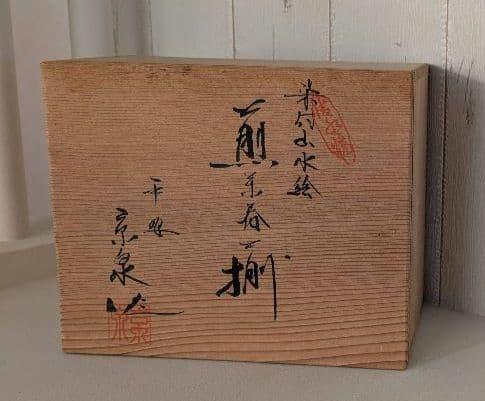 染付山水絵
煎茶器揃
平安
京泉造